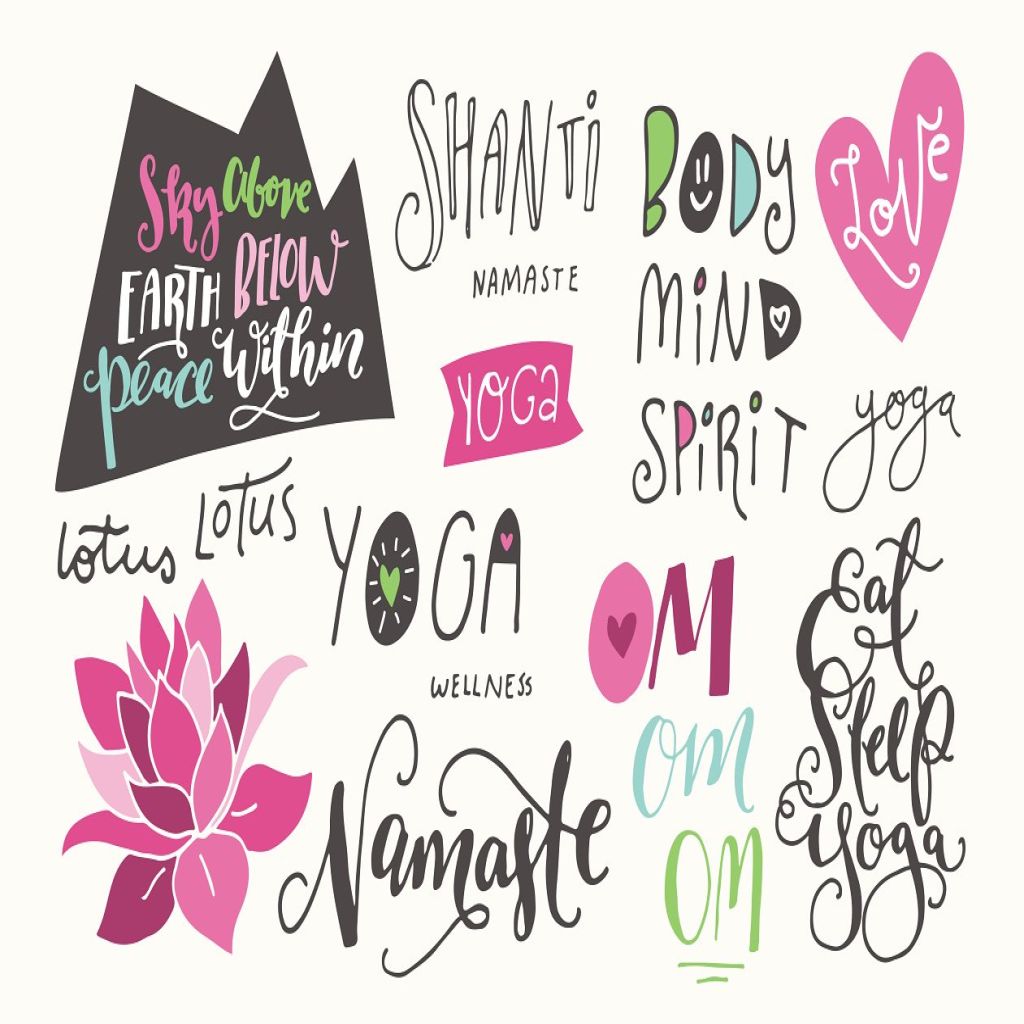 Sky above
EARTH BELOW
peace within
SHANTI
NAMASTE
BODY
MIND
SPIRIT
Love
YOGA
yoga
lotus
LOTUS
YOGA
WELLNESS
OM
om
OM
Eat
Sleep
yoga
Namaste